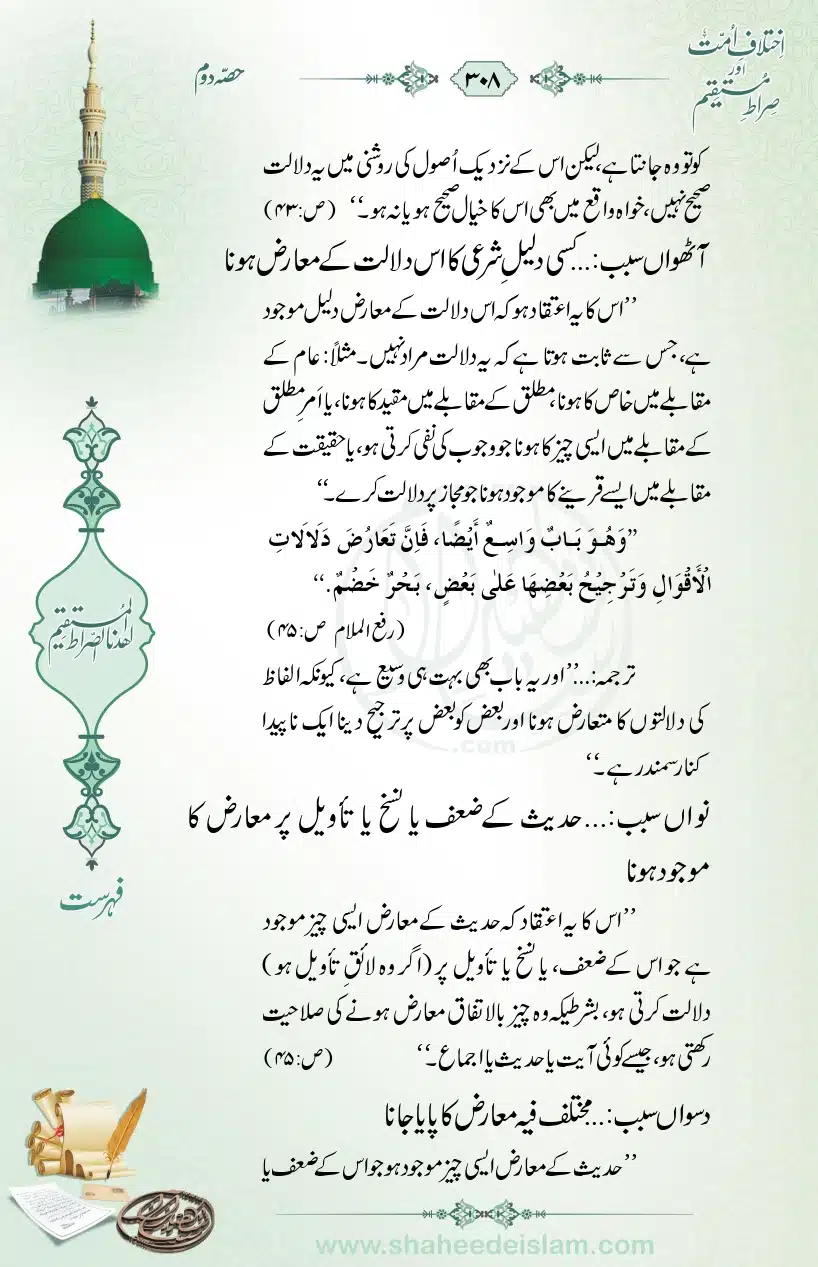 اِختلافِ اُمّت
اور
صِراطِ مُستقیم
۳۰۸
حصّہ دوم
کو تو وہ جانتا ہے، لیکن اس کے نزدیک اُصول کی روشنی میں یہ دلالت
صحیح نہیں، خواہ واقع میں بھی اس کا خیال صحیح ہو یا نہ ہو۔‘‘ (ص:۴۳)
آٹھواں سبب:... کسی دلیلِ شرعی کا اس دلالت کے معارض ہونا
’’اس کا یہ اعتقاد ہو کہ اس دلالت کے معارض دلیل موجود
ہے، جس سے ثابت ہوتا ہے کہ یہ دلالت مراد نہیں۔ مثلاً: عام کے
مقابلے میں خاص کا ہونا، مطلق کے مقابلے میں مقید کا ہونا، یا اَمرِ مطلق
کے مقابلے میں ایسی چیز کا ہونا جو وجوب کی نفی کرتی ہو، یا حقیقت کے
مقابلے میں ایسے قرینے کا موجود ہونا جو مجاز پر دلالت کرے۔‘‘
’’وَهُوَ بَابٌ وَاسِعٌ أَيْضًا، فَإِنَّ تَعَارُضَ دَلَالَاتِ
الْأَقْوَالِ وَتَرْجِيْحُ بَعْضِهَا عَلٰى بَعْضٍ، بَحْرٌ خَضْمٌ.‘‘
(رفع الملام ص:۴۵)
ترجمہ:...’’اور یہ باب بھی بہت ہی وسیع ہے، کیونکہ الفاظ
کی دلالتوں کا متعارض ہونا اور بعض کو بعض پر ترجیح دینا ایک ناپیدا
کنار سمندر ہے۔‘‘
نواں سبب:... حدیث کے ضعف یا نسخ یا تأویل پر معارض کا
موجود ہونا
’’اس کا یہ اعتقاد کہ حدیث کے معارض ایسی چیز موجود
ہے جو اس کے ضعف، یا نسخ یا تأویل پر (اگر وہ لائقِ تأویل ہو)
دلالت کرتی ہو، بشرطیکہ وہ چیز بالاتفاق معارض ہونے کی صلاحیت
رکھتی ہو، جیسے کوئی آیت یا حدیث یا اجماع۔‘‘ (ص:۴۵)
دسواں سبب:... مختلف فیہ معارض کا پایا جانا
’’حدیث کے معارض ایسی چیز موجود ہو جو اس کے ضعف یا
اهدنا الصراط المستقیم
فہرست
.com
www.shaheedeislam.com